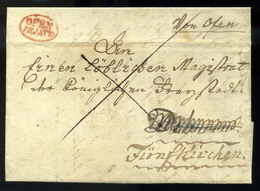 OFEN
FRANCO
Von Ofen
An
Einen löblichen Magistrat
der Königlichen Freystadt
Fünfkirchen.